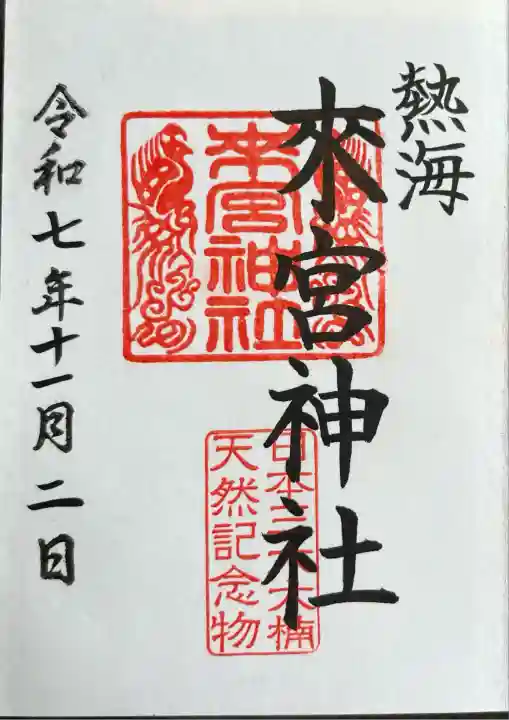 熱海
來宮神社
來宮神社
日本三大楠
天然記念物
令和七年十一月二日